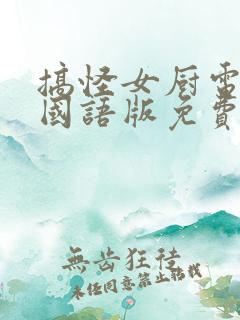 搞怪女厨雷
國語版免費
無齿狂徒
未经同意禁止轉我